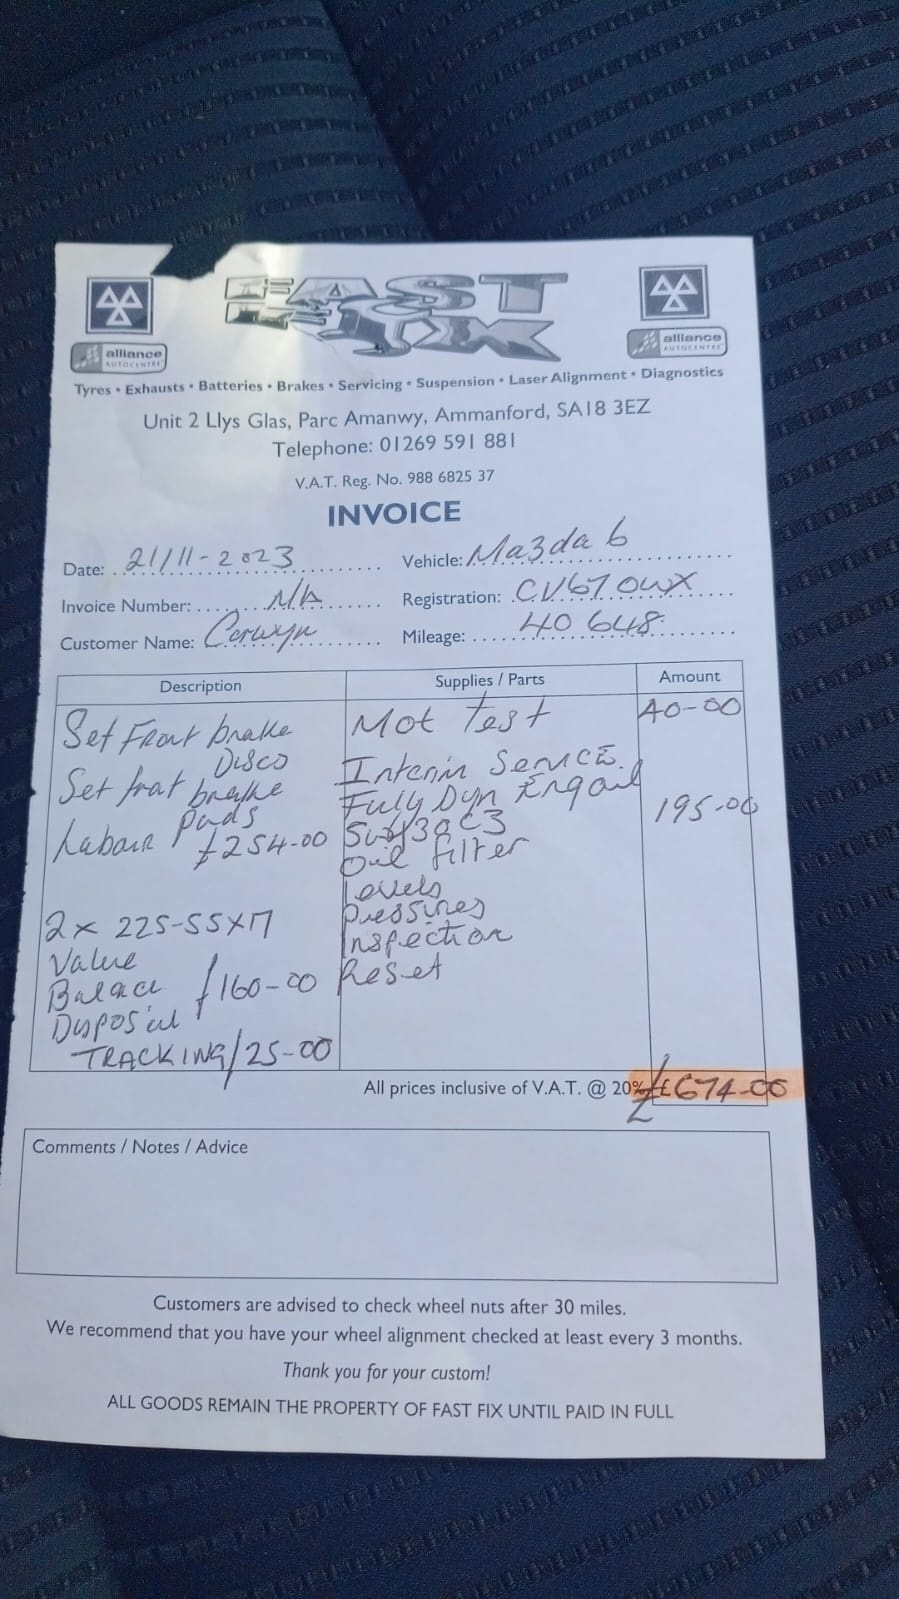 FAST
FIX
alliance
AUTOCENTRE
alliance
AUTOCENTRE
Tyres • Exhausts • Batteries • Brakes • Servicing • Suspension • Laser Alignment • Diagnostics
Unit 2 Llys Glas, Parc Amanwy, Ammanford, SA18 3EZ
Telephone: 01269 591 881
V.A.T. Reg. No. 988 6825 37
INVOICE
Date: 21/11-2023
Vehicle: Ma3da 6
Invoice Number: N/A
Registration: CV67 OWX
Customer Name: Cerwyn
Mileage: 40 648
Description
Supplies / Parts
Amount
Set Front brake
Discs
Set frat brake
Pads
Labour £254-00
2x 225-55x17
Valve
Balace £160-00
Disposal
TRACKING/25-00
Mot Test
40-00
Interim Service.
Fully Dyn
195-00
Oil filter
Levels
Pressures
Inspection
Reset
All prices inclusive of V.A.T. @ 20% £ £674-00
Comments / Notes / Advice
Customers are advised to check wheel nuts after 30 miles.
We recommend that you have your wheel alignment checked at least every 3 months.
Thank you for your custom!
ALL GOODS REMAIN THE PROPERTY OF FAST FIX UNTIL PAID IN FULL